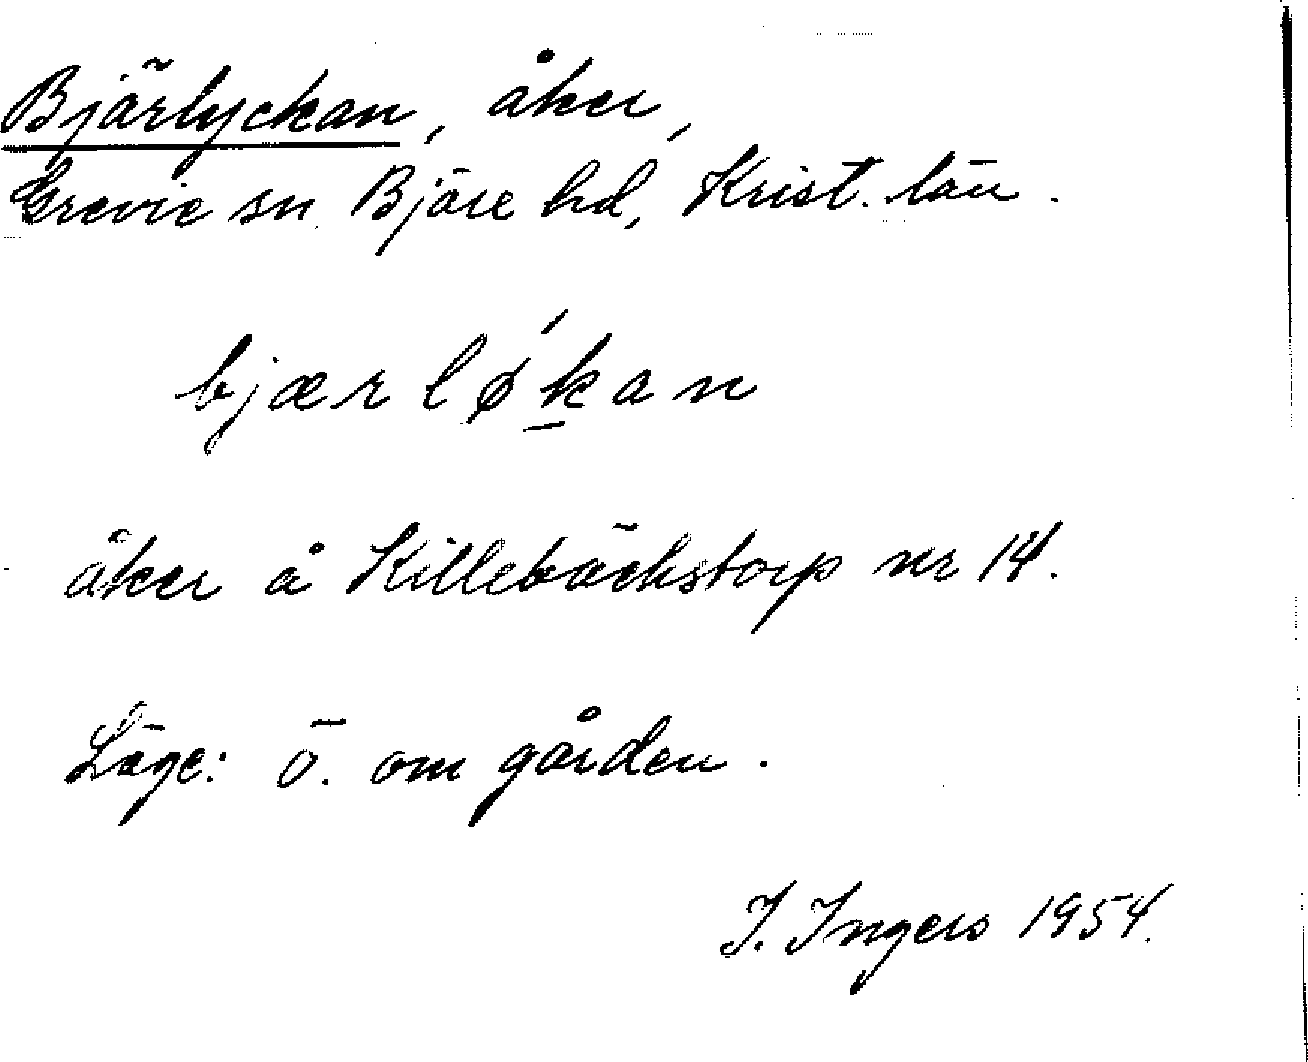 Bjärlyckan, åker,
Grevie sn. Bjäre hd, Krist. län.
bjærlø´kan
åker å Killebäckstorp nr 14.
Läge: ö. om gården.
I. Ingers 1954.